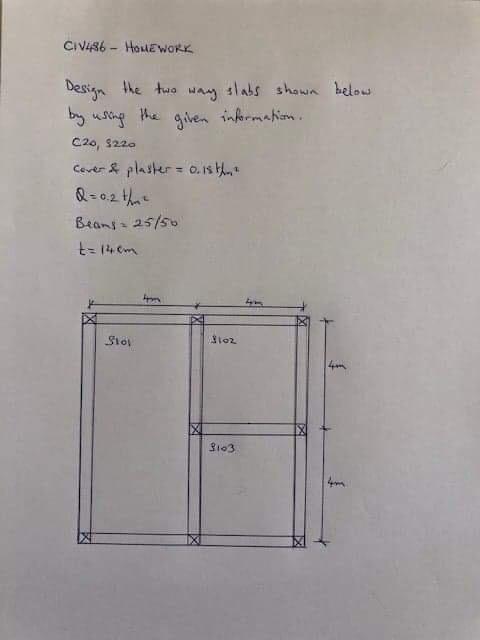 CIV486 - HOMEWORK
Design the two way slabs shown below
by using the given information.
C20, S220
Cover & plaster = 0.18 t/m²
Q = 0.2 t/m²
Beams = 25/50
t = 14 cm
4m 4m
S101 S102
4m
S103
4m